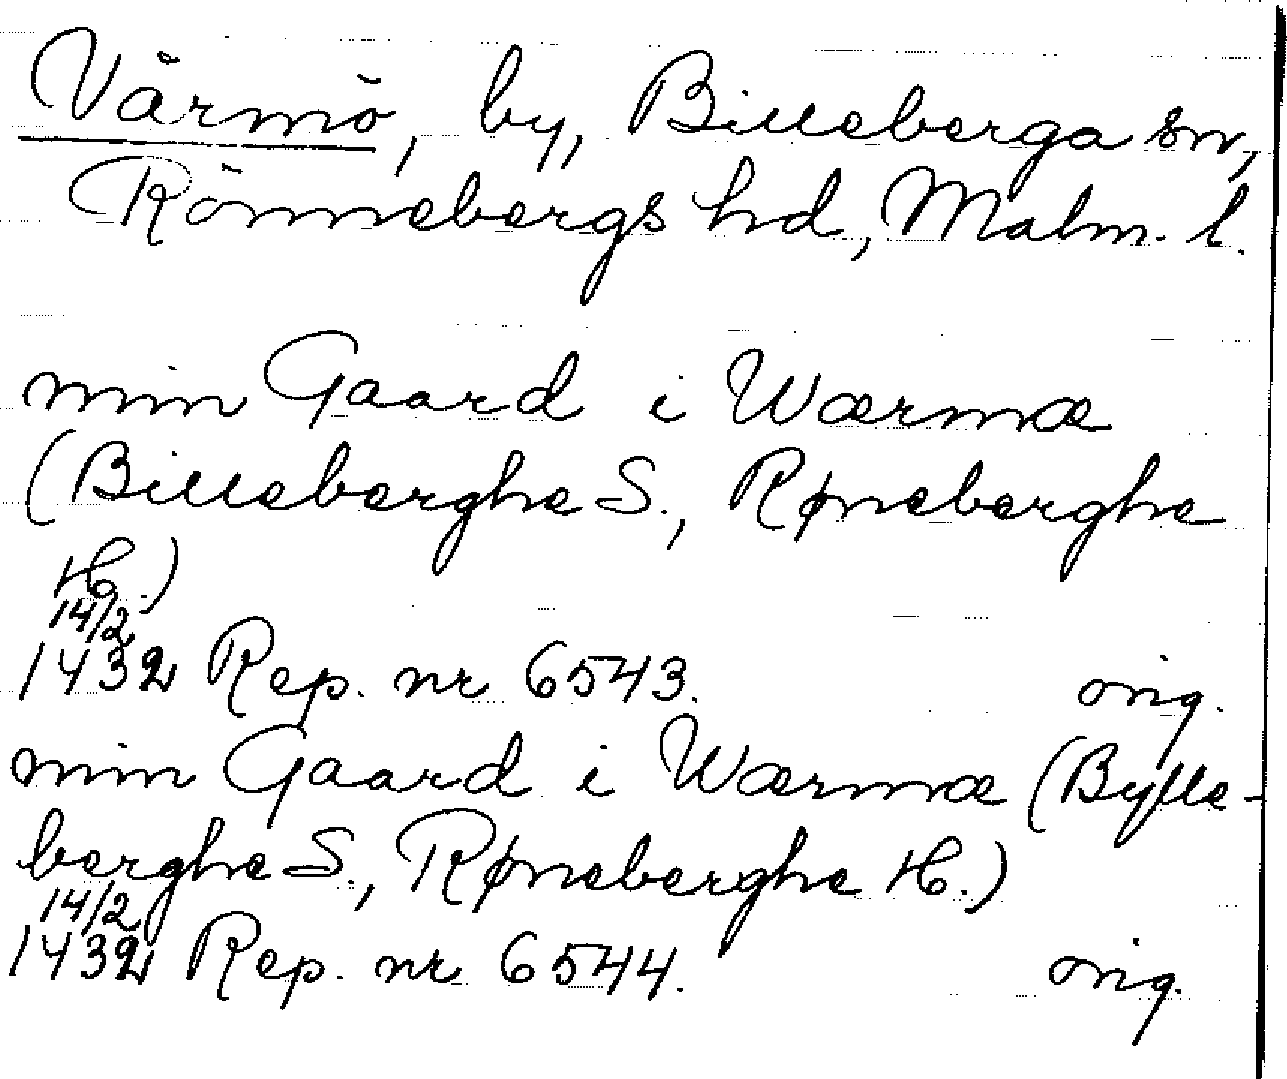 Värmö, by, Billeberga sn,
Rönnebergs hd, Malm. l.
min Gaard i Wærmæ
(Billeberghe S., Røneberghe
H.)
14/2
1432 Rep. nr 6543. orig.
min Gaard i Wærmæ (Bylle-
berghe S., Røneberghe H.)
14/2
1432 Rep. nr 6544. orig.